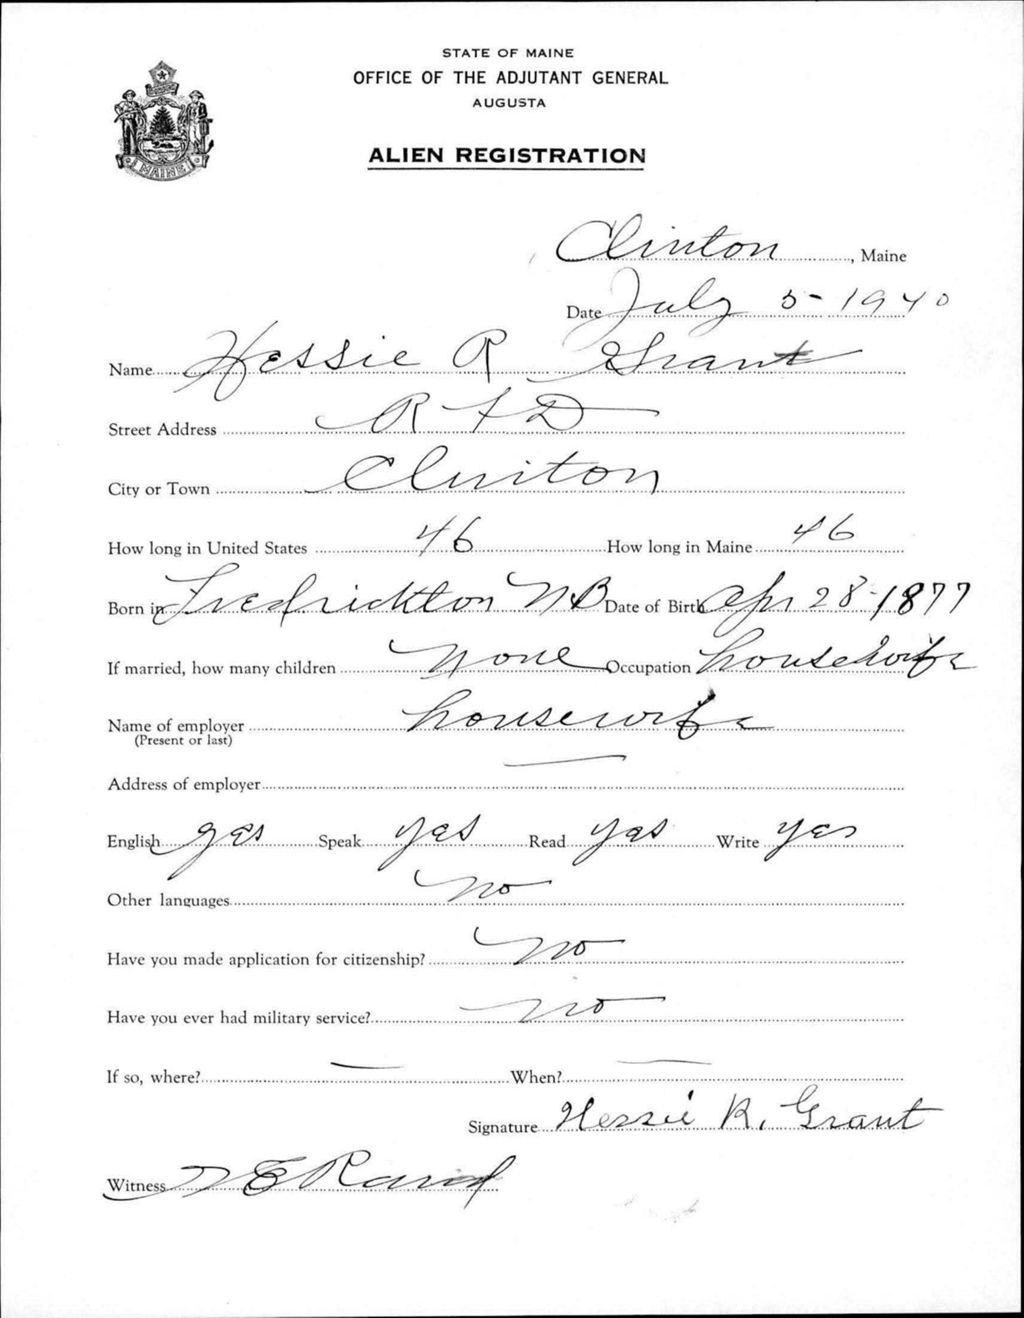 STATE OF MAINE
OFFICE OF THE ADJUTANT GENERAL
AUGUSTA
ALIEN REGISTRATION
MAINE
Clinton, Maine
Date July 5-1940
Name Hessie R Grant
Street Address R F D
City or Town Clinton
How long in United States 46 How long in Maine 46
Born in Fredrickton NB Date of Birth Apr 28-1877
If married, how many children None Occupation housewife
Name of employer housewife
(Present or last)
Address of employer —
English yes Speak yes Read yes Write yes
Other languages no
Have you made application for citizenship? no
Have you ever had military service? no
If so, where? — When? —
Signature Hessie R. Grant
Witness E Rand